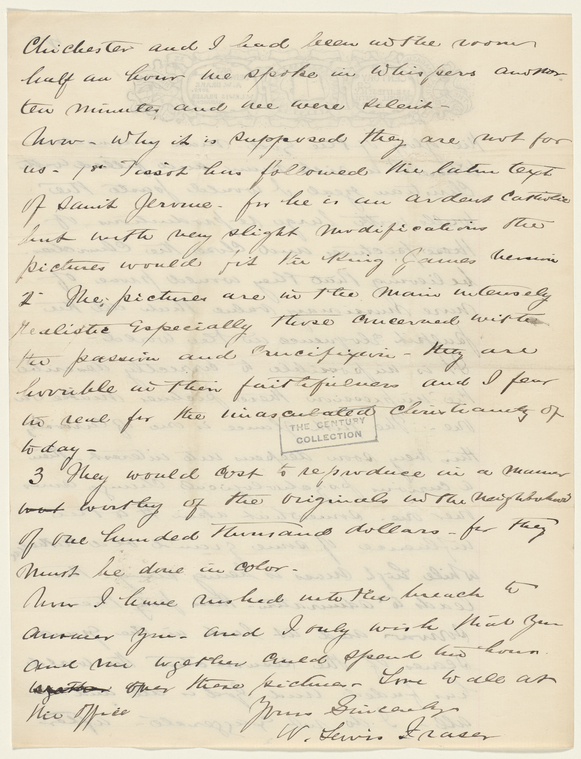 Chichester and I had been in the room
half an hour we spoke in whispers another
ten minutes and we were silent -
Now - Why it is supposed they are not for
us - 1st Tissot has followed the latin text
of Saint Jerome - for he is an ardent Catholic
but with very slight modifications the
pictures would fit the King James version
2 The pictures are in the main intensely
realistic especially those concerned with
the passion and crucifixion - they are
horrible in their faithfulness and I fear
too real for the emasculated Christianity of
today -
3 They would cost to reproduce in a manner
worthy of the originals in the neighborhood
of one hundred thousand dollars - for they
must be done in color -
Now I have rushed into the breach to
answer you - and I only wish that you
and me together could spend an hour
together over these pictures - Love to all at
the office
Yours Sincerely
W. Lewis Fraser
THE CENTURY
COLLECTION